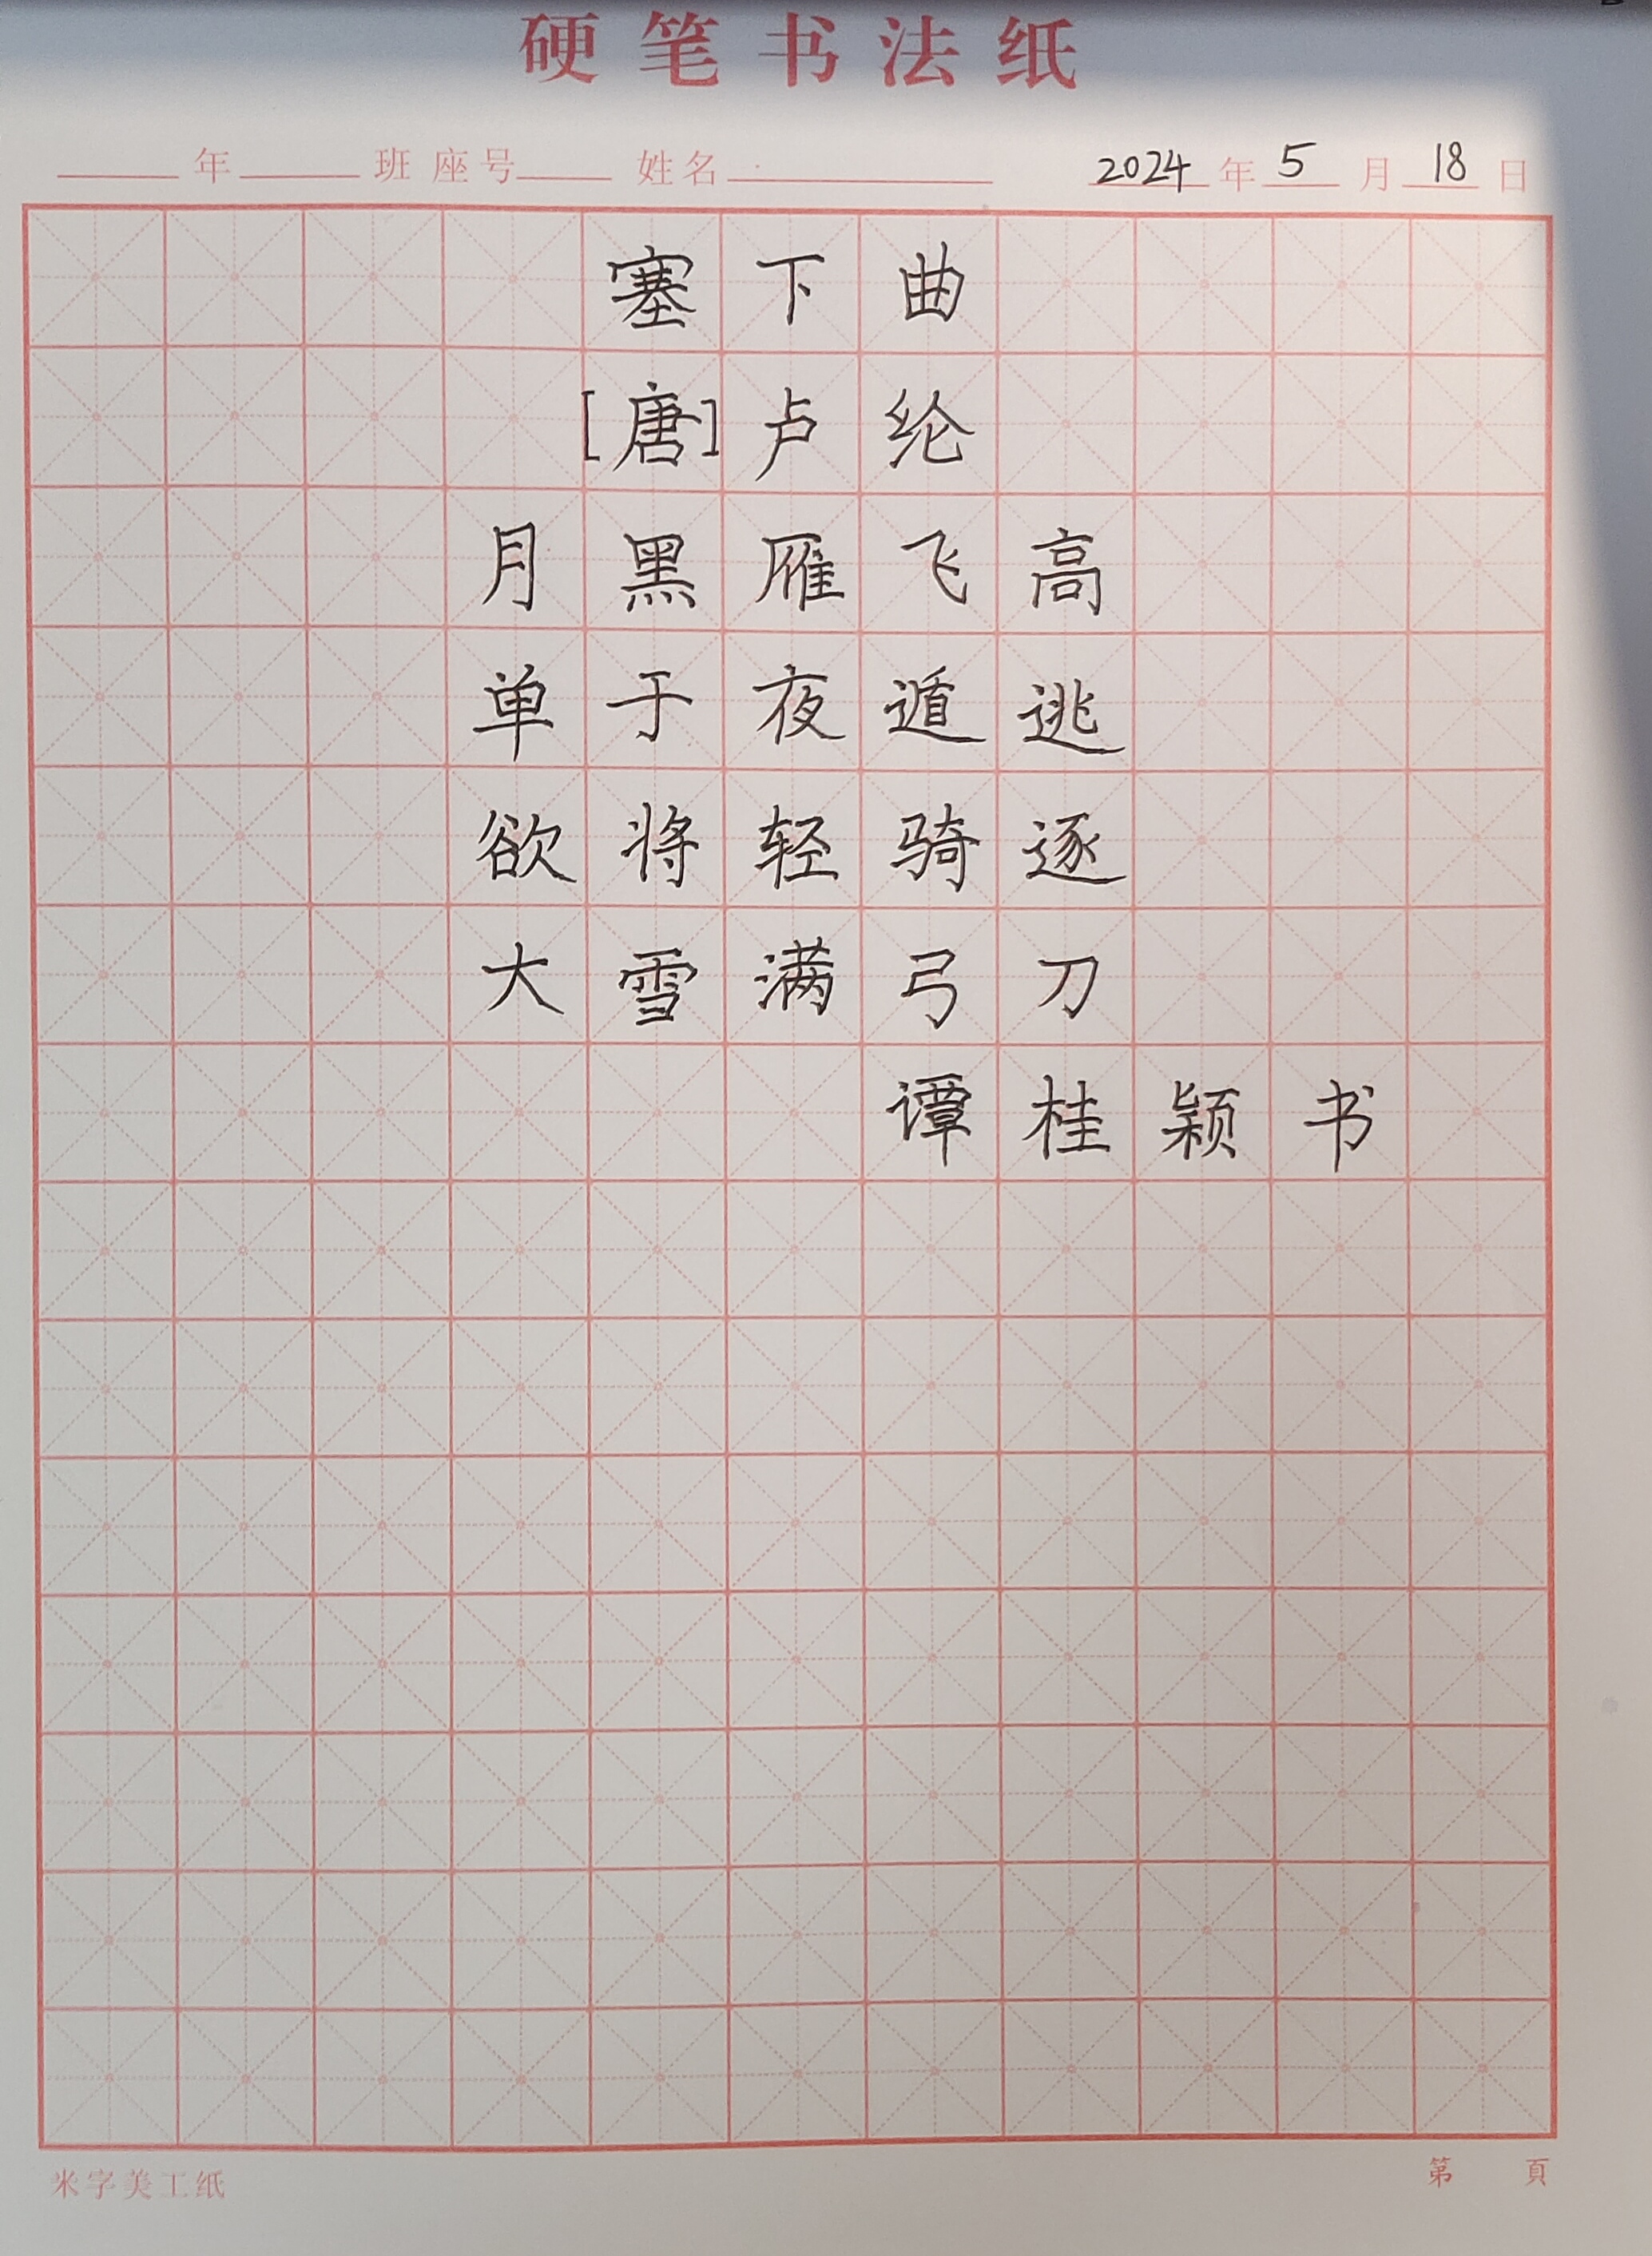 硬笔书法纸
年 班 座号 姓名 2024 年 5 月 18 日
塞下曲
[唐]卢纶
月黑雁飞高
单于夜遁逃
欲将轻骑逐
大雪满弓刀
谭桂颖书
米字美工纸 第 頁